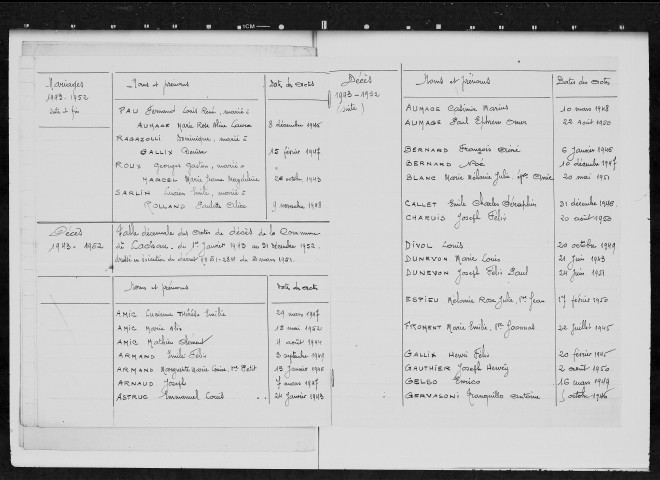 1CM
Mariages
1943-1952
Noms et prénoms
Dates des actes
PAU Fernand Louis René, marié à
AUMAGE Marie Rose Aline Laura 8 décembre 1945
RAGAZOLLI Dominique, marié à
GALLIX Denise 15 février 1947
ROUX Georges Gaston, marié à
MARCEL Marie Jeanne Magdeleine 26 octobre 1943
SARLIN Lucien Emile, marié à
ROLLAND Paulette Alice 9 novembre 1948
Décès
1943-1952
Table décennale des actes de décès de la Commune
de du 1er Janvier 1943 au 31 Décembre 1952
dressée en exécution du décret n° 51-284 du 3 mars 1951.
Noms et prénoms
Dates des actes
AMIC Lucienne Thérèse Emilie 29 mars 1947
AMIC Marie Alix 13 mai 1952
AMIC Mathieu Clément 4 août 1944
ARMAND Emile Félix 3 septembre 1949
ARMAND Marguerite Marie Louise, Vve Petit 13 Janvier 1946
ARNAUD Joseph 7 mars 1947
ASTRUC Emmanuel Louis 24 Janvier 1943
Décès
1943-1952
(suite)
Noms et prénoms
Dates des actes
AUMAGE Casimir Marius 10 mars 1948
AUMAGE Paul Ephrem Omer 22 août 1950
BERNARD François Aimé 6 Janvier 1946
BERNARD Noé 10 décembre 1947
BLANC Marie Mélanie Julie épse Amic 20 mai 1951
CALLET Emile Charles Séraphin 31 décembre 1946
CHARUIS Joseph Félix 20 août 1950
DIVOL Louis 20 octobre 1949
DUNEVON Marie Louis 21 Juin 1943
DUNEVON Joseph Félix Paul 24 Juin 1951
ESPIEU Mélanie Rose Julie, Vve Jean 17 février 1950
FROMENT Marie Emilie, Vve Joannas 22 Juillet 1945
GALLIX Henri Félix 20 février 1945
GAUTHIER Joseph Henry 2 août 1950
GELSO Enrico 16 mars 1949
GERVASONI Tranquillo Antoine 5 octobre 1946